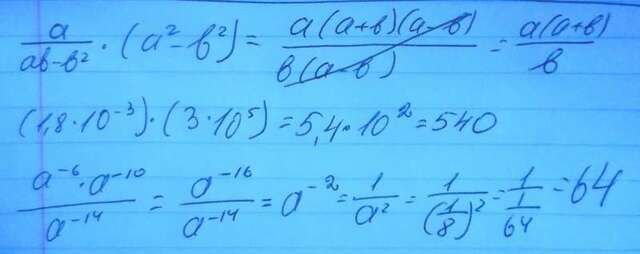 a/(ab-b²) · (a²-b²) = a(a+b)(a-b)/b(a-b) = a(a+b)/b
(1,8·10⁻³)·(3·10⁵)=5,4·10²=540
a⁻⁶·a⁻¹⁰/a⁻¹⁴ = a⁻¹⁶/a⁻¹⁴ = a⁻² = 1/a² = 1/(1/8)² = 1/(1/64) = 64